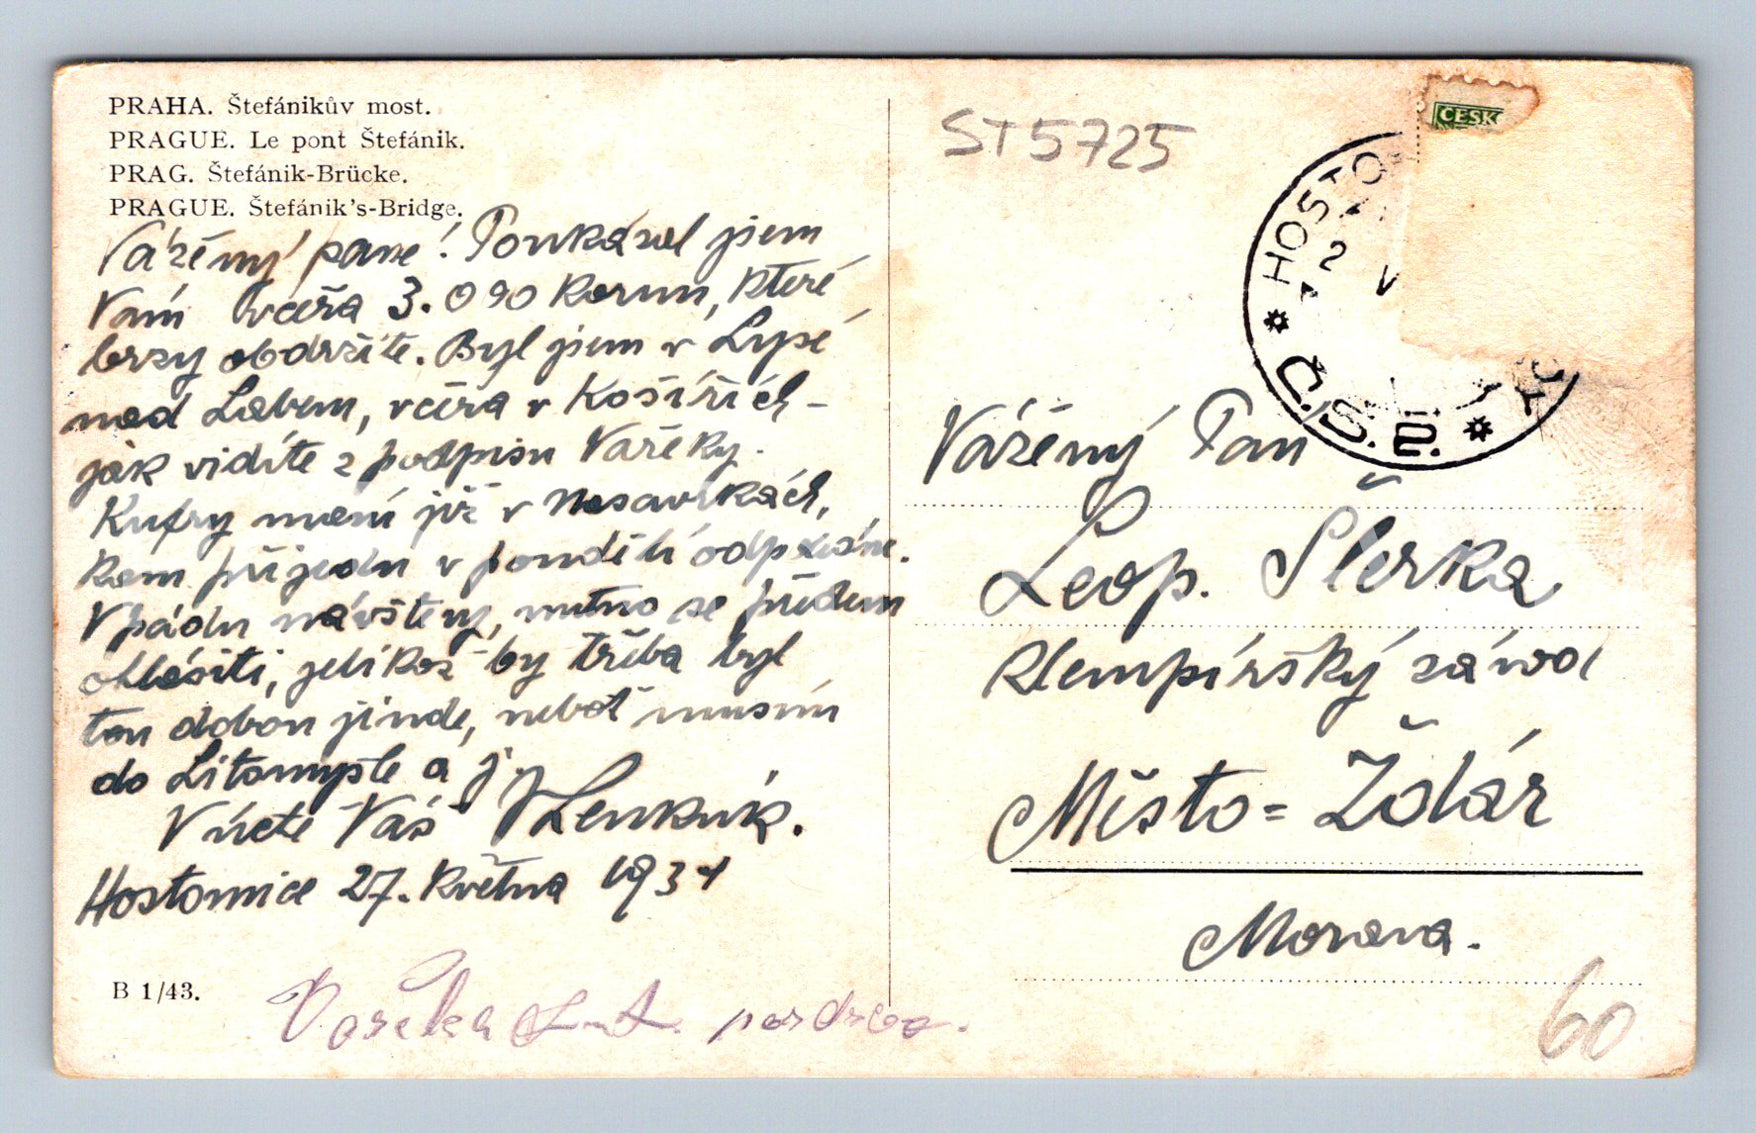 PRAHA. Štefánikův most.
PRAGUE. Le pont Štefánik.
PRAG. Štefánik-Brücke.
PRAGUE. Štefánik's-Bridge.
Vážený pane! Poukázal jsem
Vám včera 3.090 korun, které
brzy obdržíte. Byl jsem v Lysé
nad Labem, včera v Košířích -
jak vidíte z podpisu Vařeky.
Kufry mám již v Nasavrkách,
kam přijedu v pondělí odpoledne.
V pádu návštěvy, nutno se předem
ohlásiti, jelikož by třeba byl
tou dobou jinde, neboť musím
do Litomyšle a j.
V úctě Váš
Hostomice 27. května 1931
B 1/43.
Vařeka
ST5725
HOSTO
2 V
Č.S.2.
ČESK
Vážený Pan
Leop. Šlerka
klempířský závod
Město=Žďár
Morava.
60